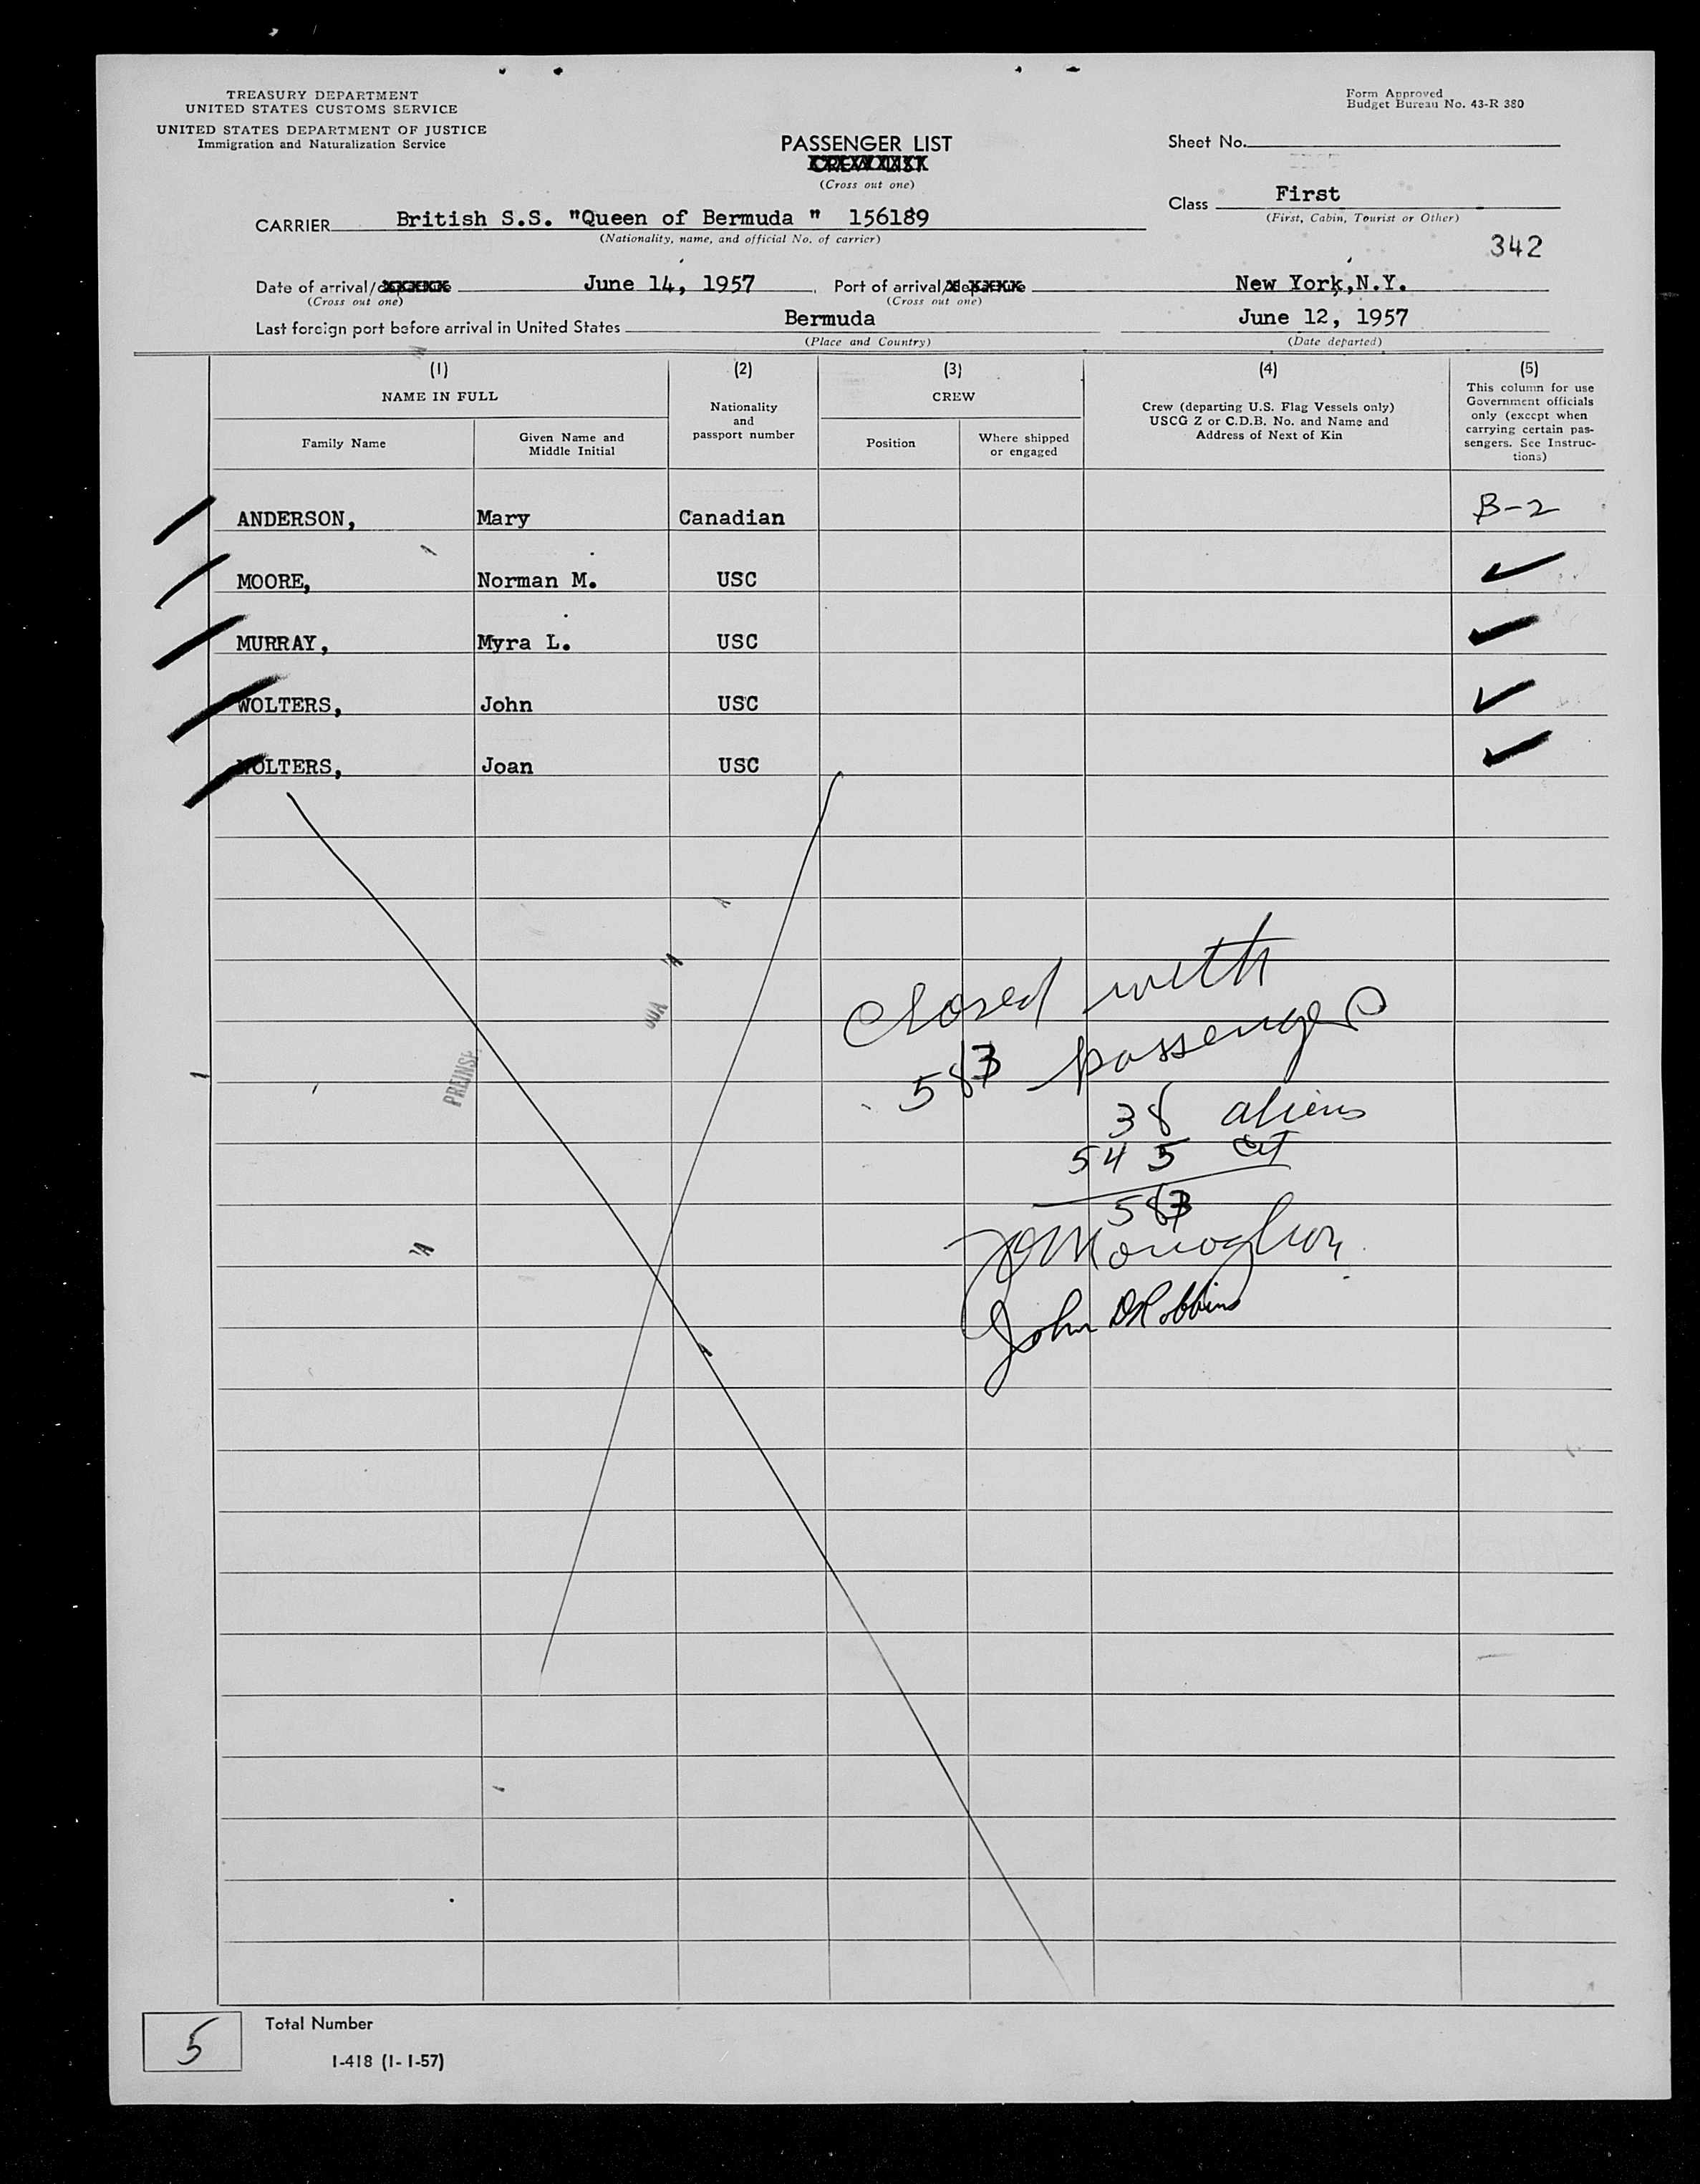 TREASURY DEPARTMENT
UNITED STATES CUSTOMS SERVICE
UNITED STATES DEPARTMENT OF JUSTICE
Immigration and Naturalization Service
Form Approved
Budget Bureau No. 43-R 380
PASSENGER LIST
CREW LIST
(Cross out one)
Sheet No.
Class First
(First, Cabin, Tourist or Other)
CARRIER British S.S. "Queen of Bermuda " 156189
(Nationality, name, and official No. of carrier)
342
Date of arrival/departure June 14, 1957 Port of arrival/departure New York,N.Y.
(Cross out one) (Cross out one)
Last foreign port before arrival in United States Bermuda June 12, 1957
(Place and Country) (Date departed)
(1) (2) (3) (4) (5)
NAME IN FULL
Family Name
Given Name and
Middle Initial
Nationality
and
passport number
CREW
Position
Where shipped
or engaged
Crew (departing U.S. Flag Vessels only)
USCG Z or C.D.B. No. and Name and
Address of Next of Kin
This column for use
Government officials
only (except when
carrying certain pas-
sengers. See Instruc-
tions)
ANDERSON, Mary Canadian B-2
MOORE, Norman M. USC ✓
MURRAY, Myra L. USC ✓
WOLTERS, John USC ✓
WOLTERS, Joan USC ✓
Closed with
583 passengers
38 aliens
545 cit
583
John D Robbins
PREINSP.
5
Total Number
I-418 (1-1-57)